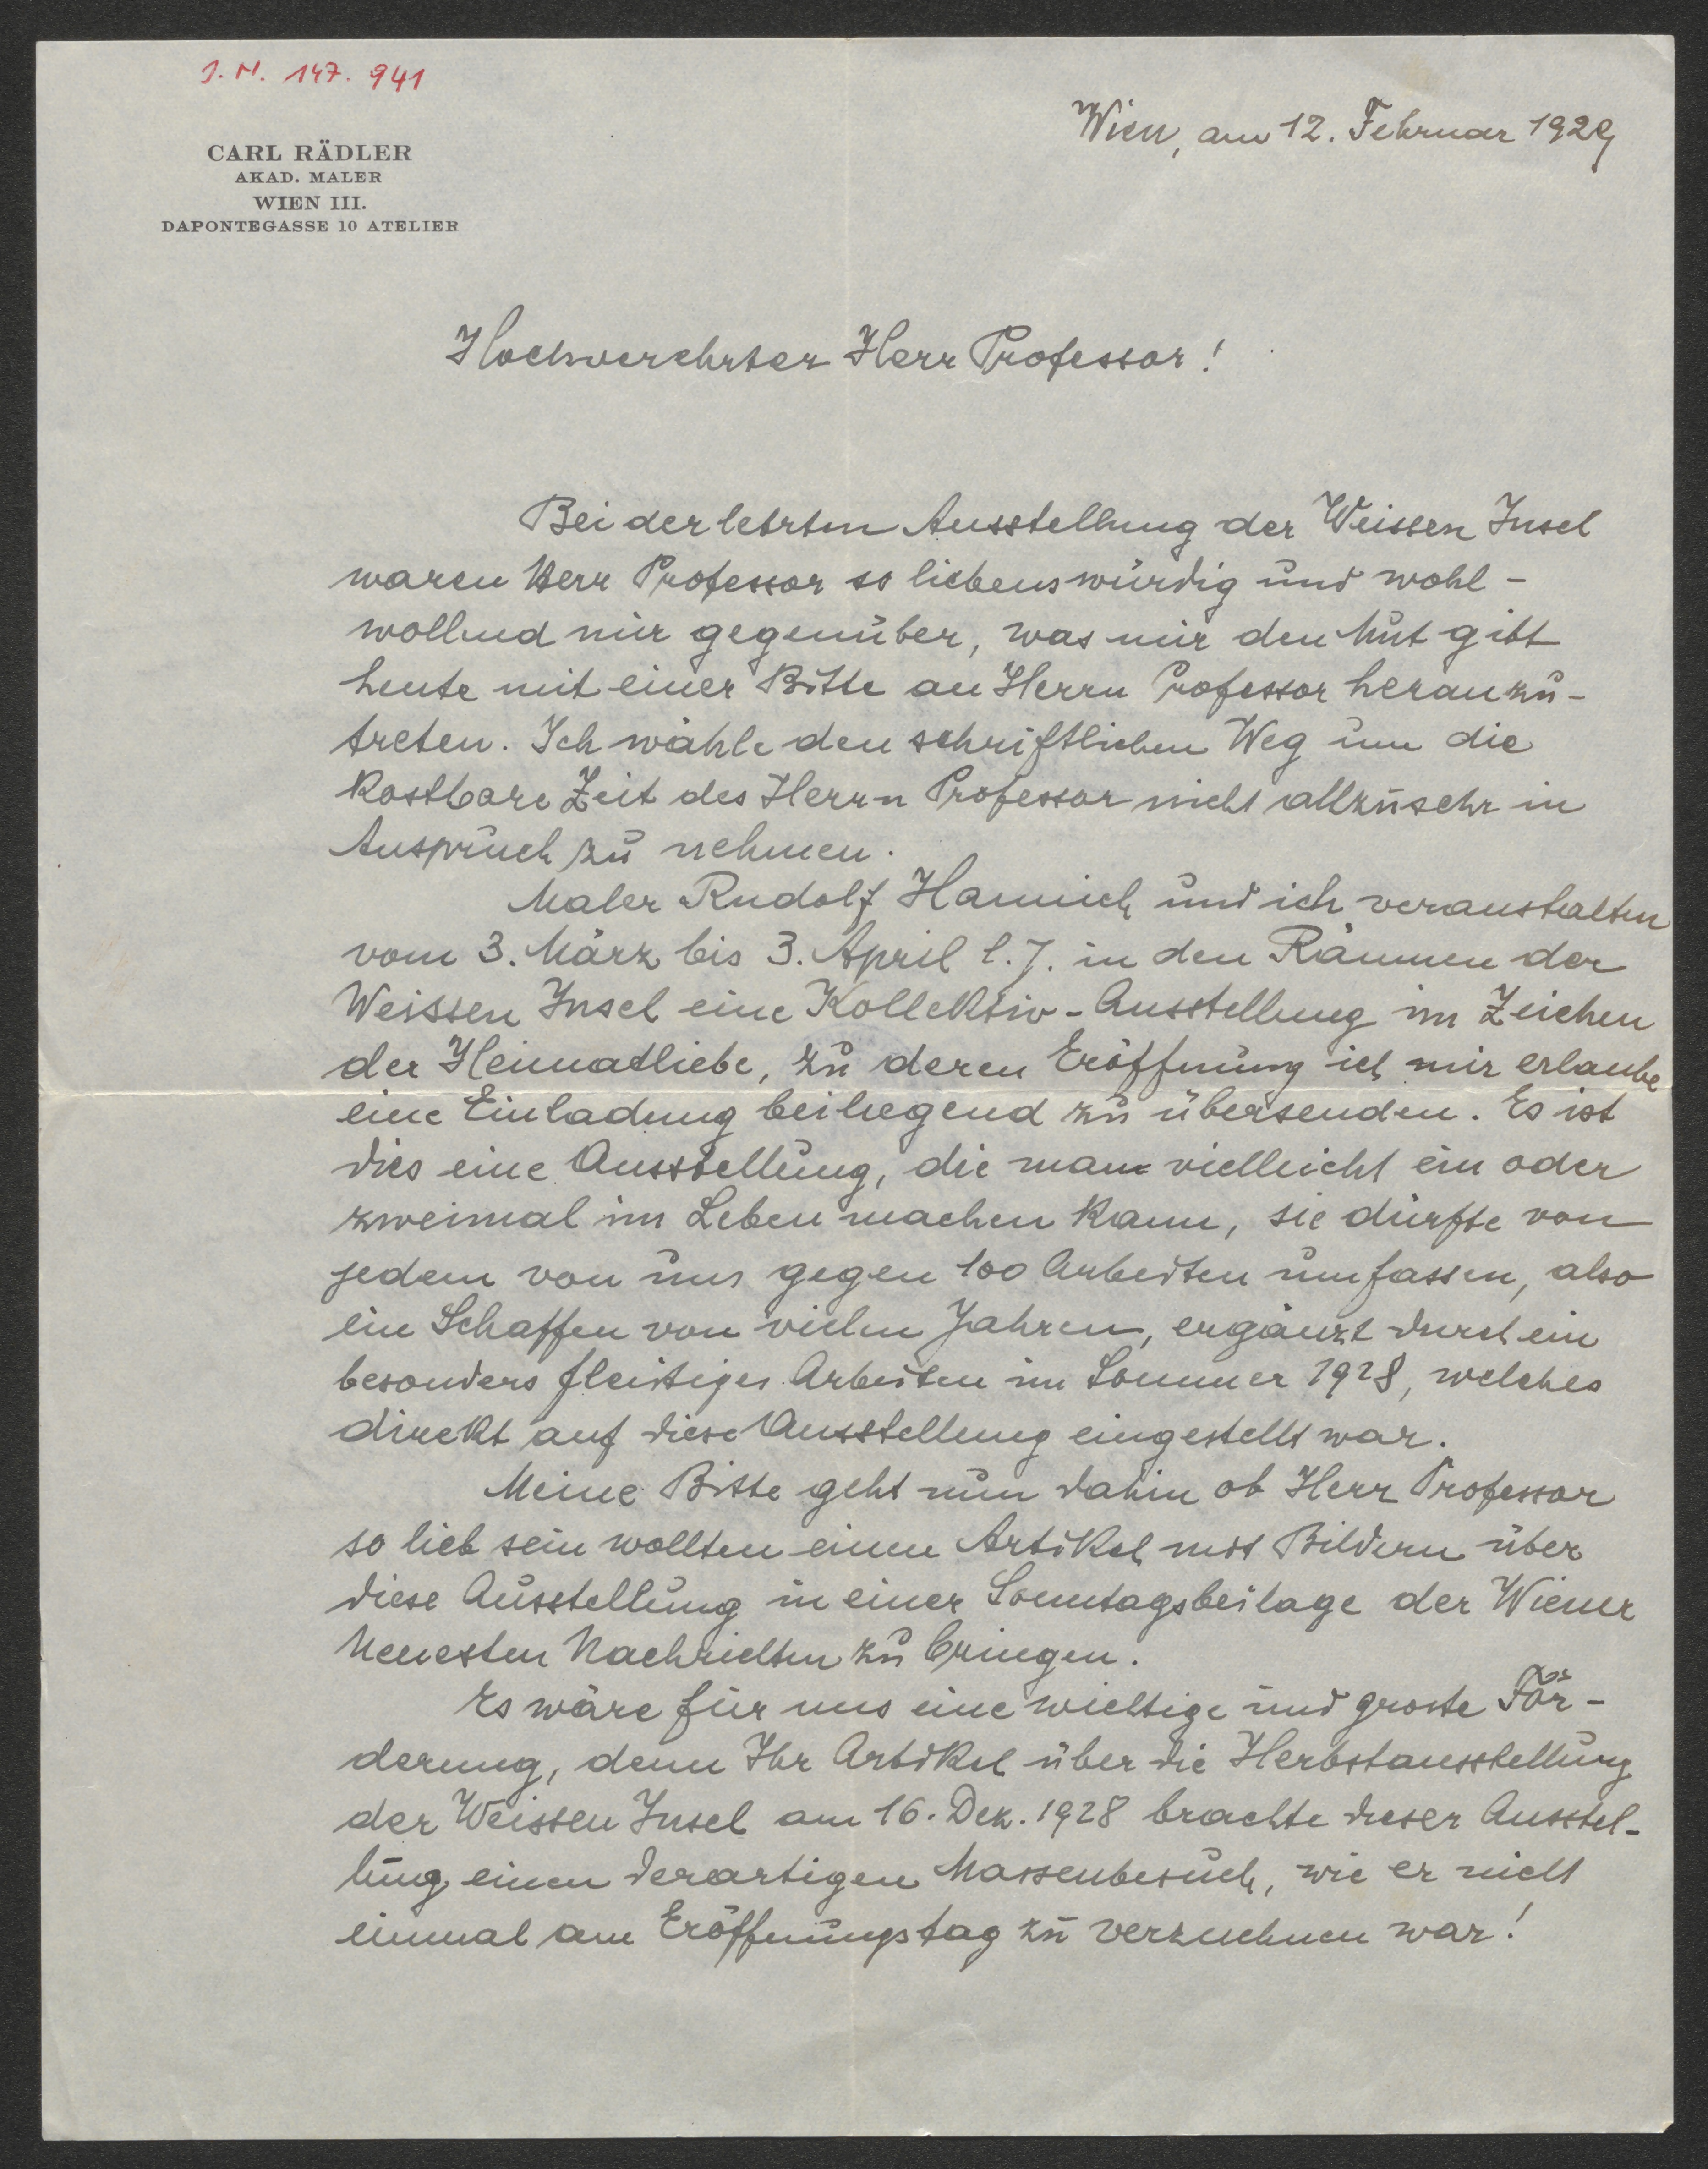 J. N. 147.941
Wien, am 12. Februar 1929
CARL RÄDLER
AKAD. MALER
WIEN III.
DAPONTEGASSE 10 ATELIER
Hochverehrter Herr Professor!
Bei der letzten Ausstellung der Weissen Insel
waren Herr Professor so liebenswürdig und wohl-
wollend mir gegenüber, was mir den Mut gibt
heute mit einer Bitte an Herrn Professor heranzu-
treten. Ich wähle den schriftlichen Weg um die
kostbare Zeit des Herrn Professor nicht allzusehr in
Anspruch zu nehmen.
Maler Rudolf und ich veranstalten
vom 3. März bis 3. April l. J. in den Räumen der
Weissen Insel eine Kollektiv-Ausstellung im Zeichen
der Heimatliebe, zu deren Eröffnung ich mir erlaube
eine Einladung beiliegend zu übersenden. Es ist
dies eine Ausstellung, die man vielleicht ein oder
zweimal im Leben machen kann, sie dürfte von
jedem von uns gegen 100 Arbeiten umfassen, also
ein Schaffen von vielen Jahren, ergänzt durch ein
besonders fleissiges Arbeiten im Sommer 1928, welches
direkt auf diese Ausstellung eingestellt war.
Meine Bitte geht nun dahin ob Herr Professor
so lieb sein wollten einen Artikel mit Bildern über
diese Ausstellung in einer Sonntagsbeilage der Wiener
Neuesten Nachrichten zu bringen.
Es wäre für uns eine wichtige und grosse För-
derung, denn Ihr Artikel über die Herbstausstellung
der Weissen Insel am 16. Dez. 1928 brachte dieser Ausstel-
lung einen derartigen Massenbesuch, wie er nicht
einmal am Eröffnungstag zu verzeichnen war!